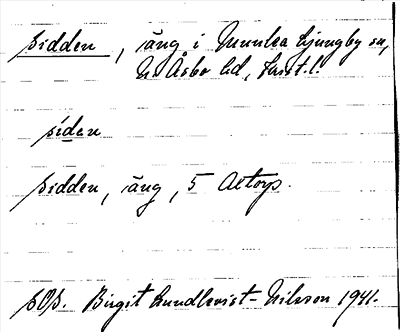 sidden, äng i Munka Ljungby sn,
N. Åsbo hd, Krist.l.
síden
sidden, äng, 5 Aetorp.
SOS. Birgit Lundkvist-Nilsson 1941.